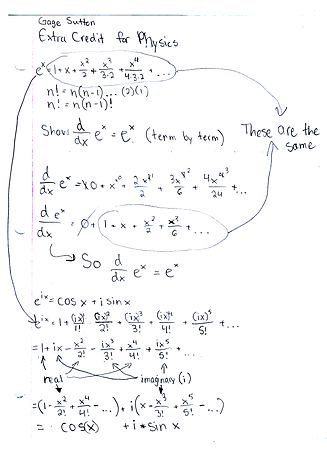 Gage Sutton
Extra Credit for Physics
e^x = 1 + x + x²/2 + x³/3·2 + x⁴/4·3·2 + ...
n! = n(n-1)... (2)(1)
n! = n(n-1)!
Show d/dx e^x = e^x (term by term)
These are the same
d/dx e^x = + 2x/2 + 3x²/6 + 4x³/24 + ...
d e^x/dx = 0 + 1 + x + x²/2 + x³/6 + ...
So d/dx e^x = e^x
e^ix = cos x + i sin x
e^ix = 1 + (ix)/1! + (ix)²/2! + (ix)³/3! + (ix)⁴/4! + (ix)⁵/5! + ...
= 1 + ix - x²/2! - ix³/3! + x⁴/4! + ix⁵/5! + ...
real imaginary (i)
= (1 - x²/2! + x⁴/4! - ...) + i(x - x³/3! + x⁵/5! - ...)
= cos(x) + i * sin x